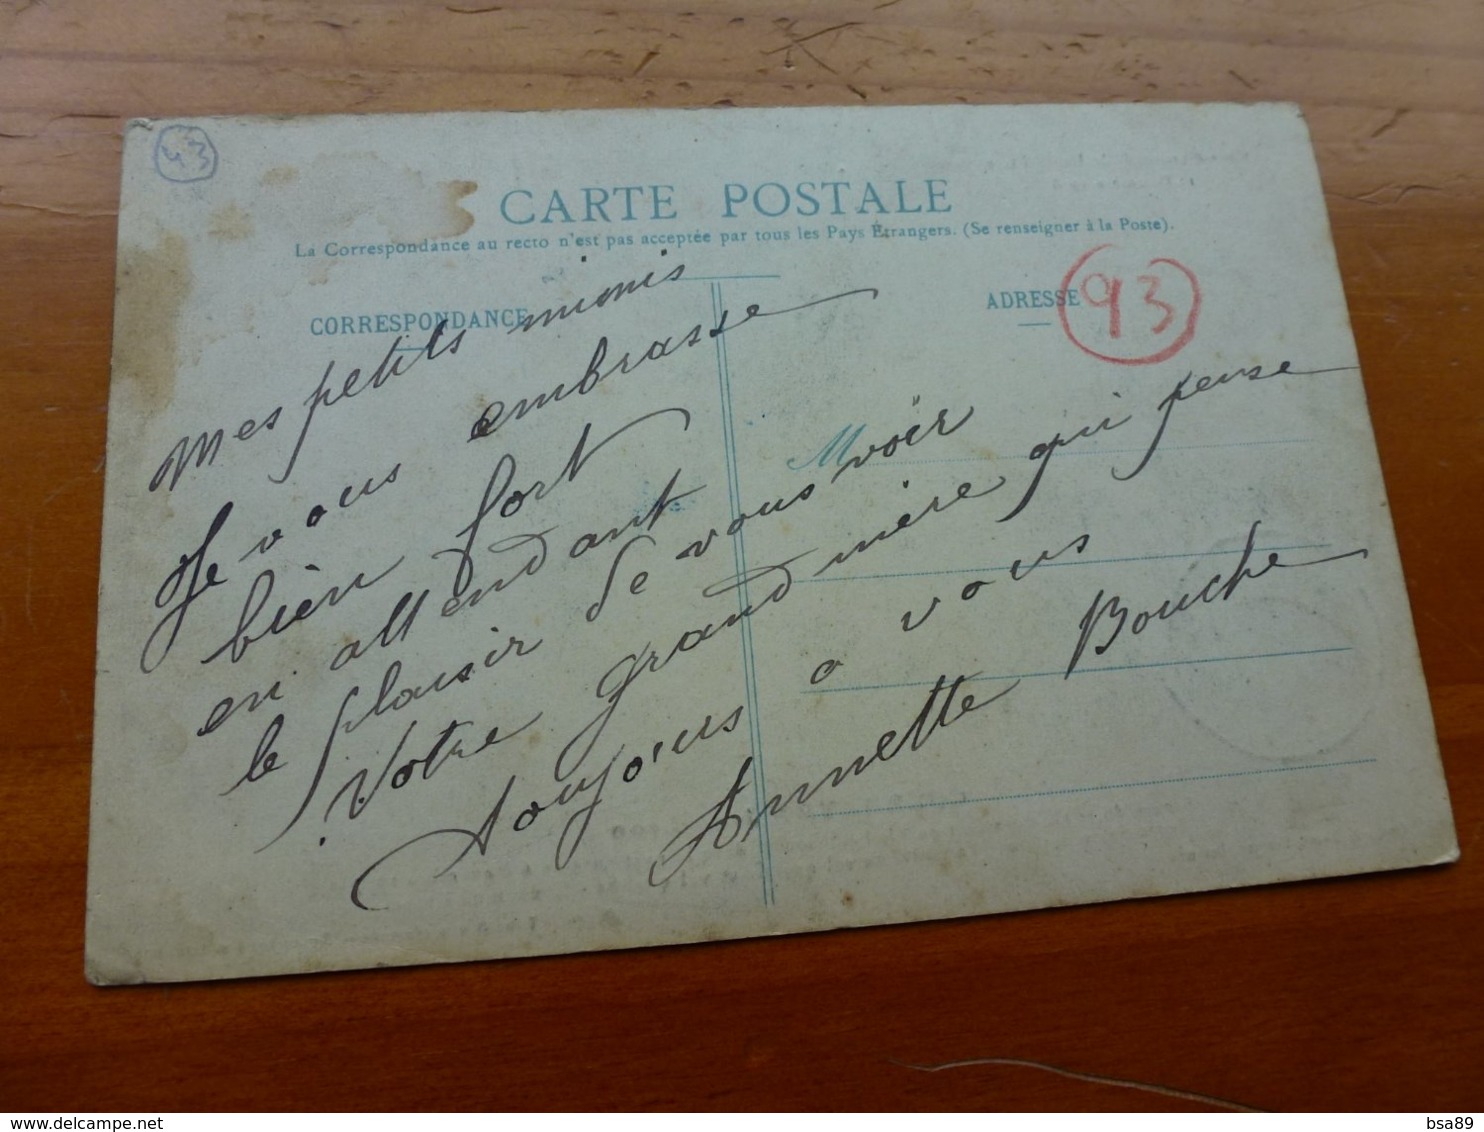 93
CARTE POSTALE
La Correspondance au recto n'est pas acceptée par tous les Pays Étrangers. (Se renseigner à la Poste).
CORRESPONDANCE
ADRESSE
93
M
Mes petits mimis
Je vous embrasse
bien fort
en attendant
le plaisir de vous voir
Votre grand mère qui pense
toujours a vous
Annette Bouche
delcampe.net
bsa89